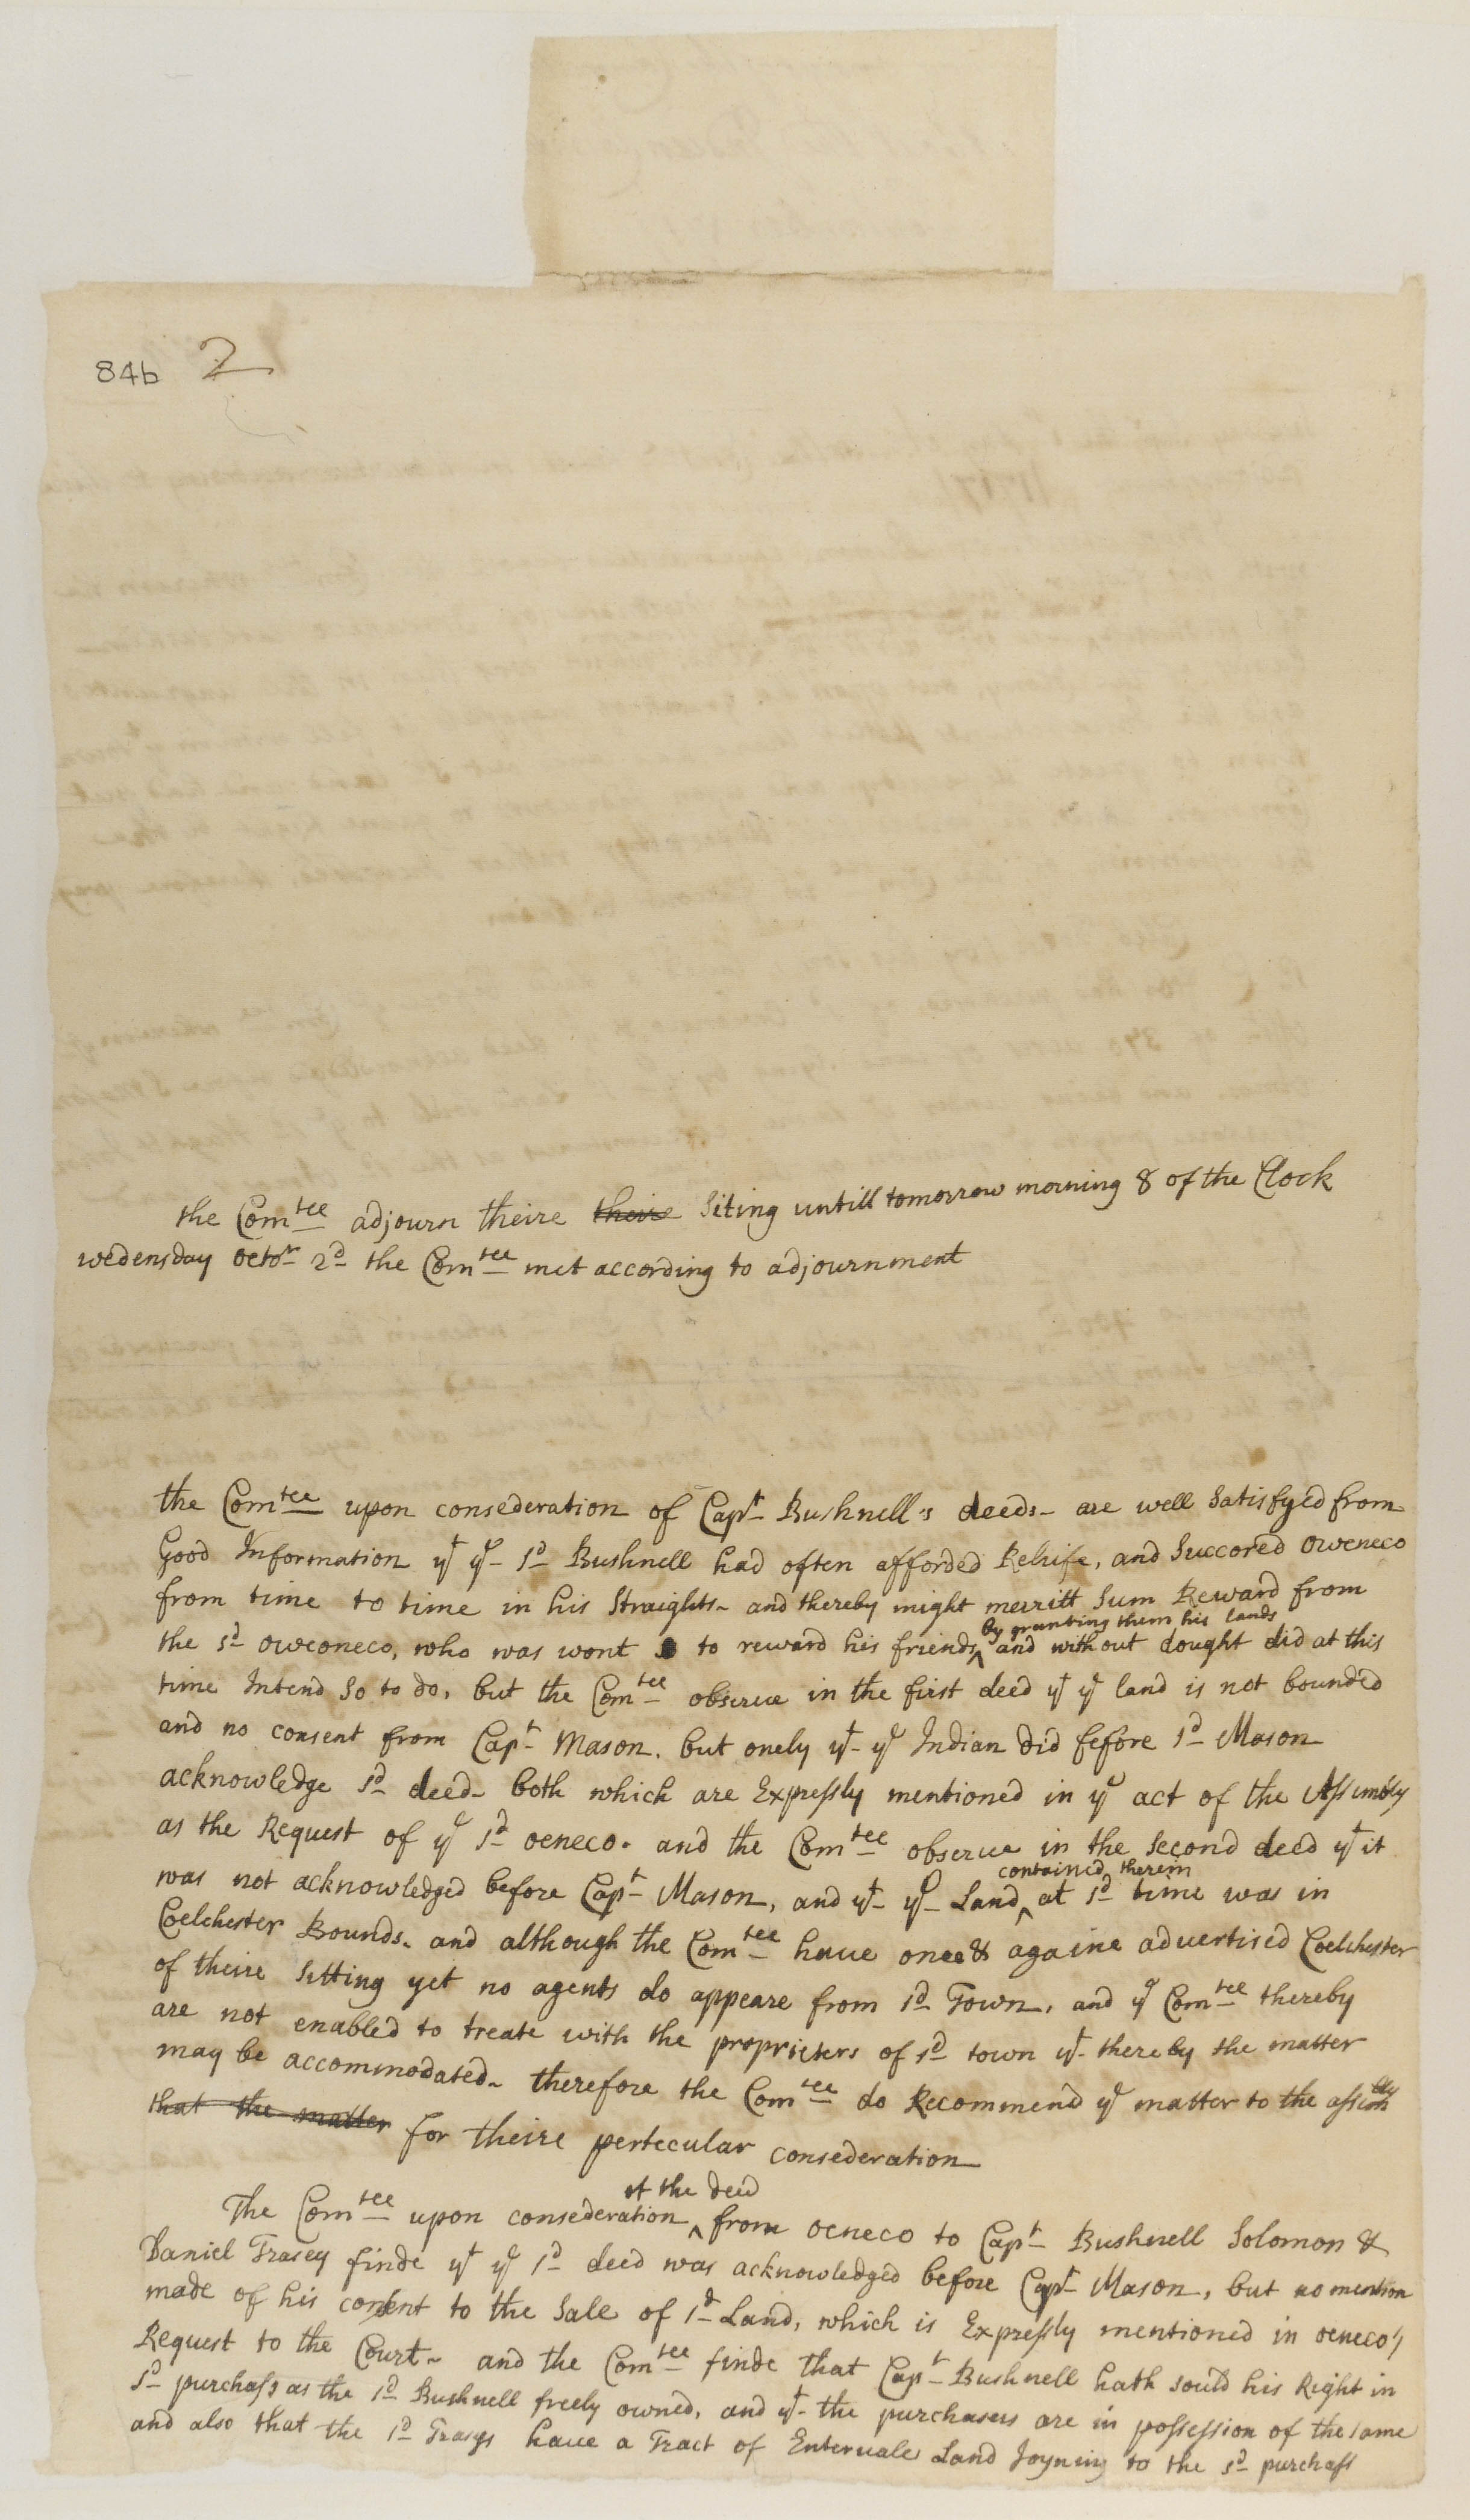 84b 2
the Com^tee adjourn theire theire Siting untill tomorrow morning 8 of the Clock
wedensday octo^r 2^d the Com^tee met according to adjournment
the Com^tee upon consederation of Cap^t Bushnell's deeds- are well Satisfyed from
Good Information y^t y^e s^d Bushnell had often afforded Releife, and Succored oweneco
from time to time in his Straights- and thereby might merritt Sum Reward from
by granting them his lands
the s^d oweoneco, who was wont to reward his friends ^ and without dought did at this
time Intend So to do, but the Com^tee observe in the first deed y^t y^e land is not bounded
and no consent from Cap^t Mason. but onely y^t y^e Indian did before s^d Mason
acknowledge s^d deed- both which are Expressly mentioned in y^e act of the Assembly
as the Request of y^e s^d oeneco. and the Com^tee observe in the Second deed y^t it
contained therein
was not acknowledged before Cap^t Mason, and y^t y^e Land ^ at s^d time was in
Coelchester Bounds. and although the Com^tee haue once & againe aduertised Coelchester
of theire Sitting yet no agents do appeare from s^d Town, and y^e Com^tee thereby
are not enabled to treate with the proprieters of s^d town y^t thereby the matter
may be accommodated- therefore the Com^tee do Recommend y^e matter to the assembly
that the matter for theire pertecular consederation
of the deed
The Com^tee upon consederation ^ from oeneco to Cap^t Bushnell Solomon &
Daniel Trasey finde y^t y^e s^d deed was acknowledged before Cap^t Mason, but no mention
made of his consent to the Sale of s^d Land, which is Expressly mentioned in oeneco's
Request to the Court- and the Com^tee finde that Cap^t Bushnell hath sould his Right in
s^d purchass as the s^d Bushnell freely owned, and y^t the purchasers are in possession of the same
and also that the s^d Trasys haue a Tract of Enteruale Land Joyning to the s^d purchass